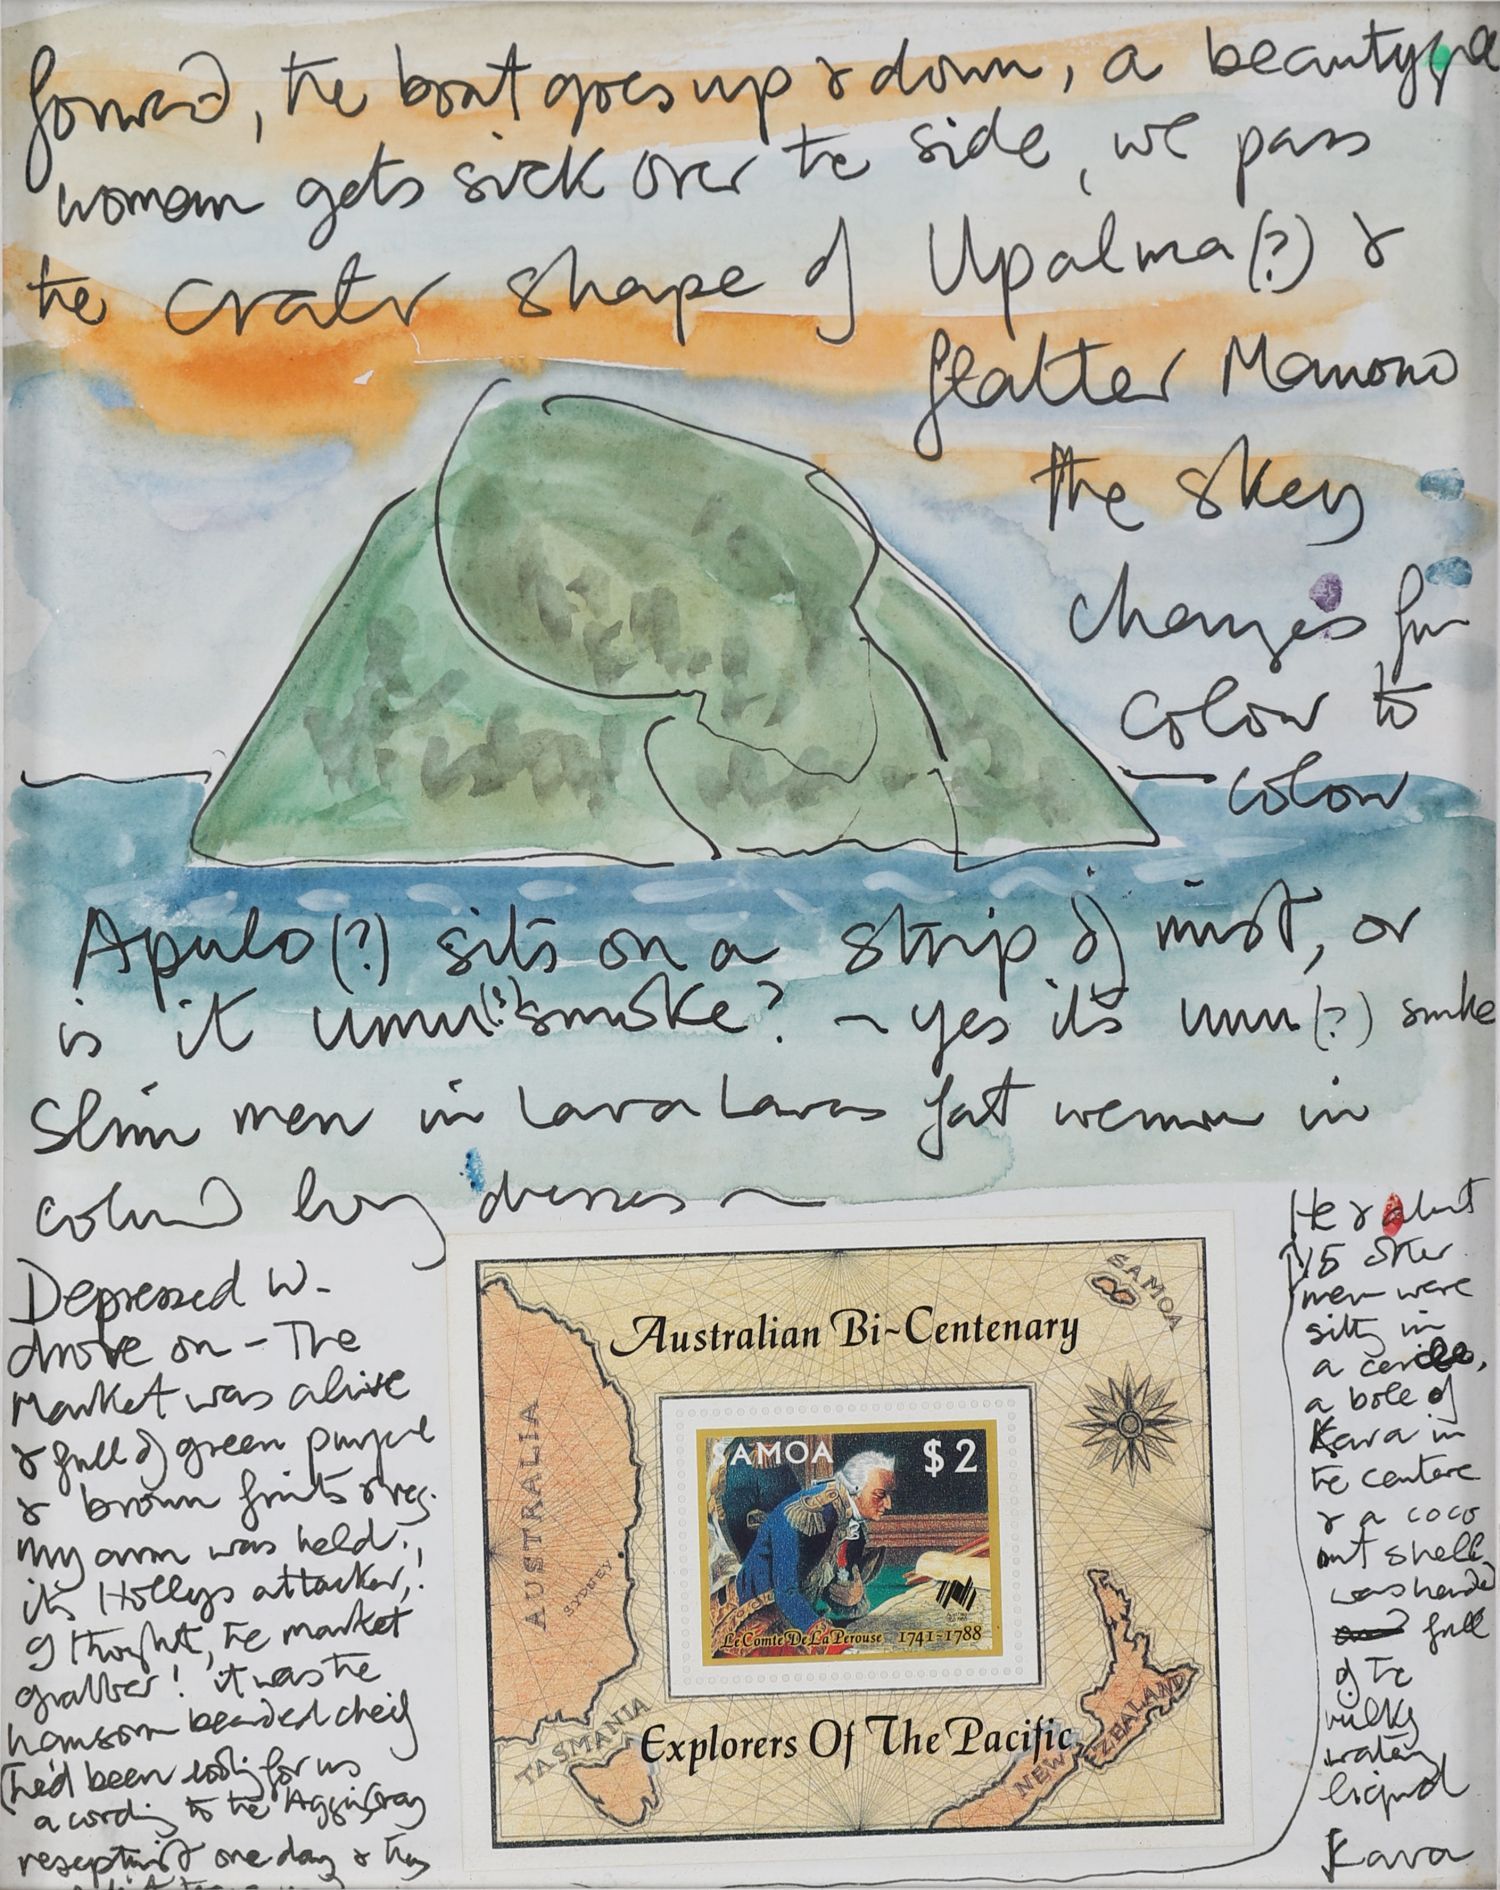 forward, the boat goes up & down, a beauty
woman gets sick over the side, we pass
the cratr shape of Upalma(?) &
flatter Manono
the skey
changes fm
colour to
colour
Apulo(?) sits on a strip of mist, or
is it umu(?) smoke? ~ yes it's umu(?) smke
Slim men in Lava Lavas fat wemun in
colurd long dresses ~
Depressed w.
drove on – The
Market was alive
& full of green purpel
& brown fruits & veg.
My arm was held.,
it's Hollys attacker,!
I thought, the market
graller! it was the
hansom bearded cheif
(he'd been looking for us
acording to the Aggie Gray
reseptinist one day & they
He & about
15 other
men were
sittg in
a circle,
a bole of
Kava in
the centere
& a coco
nut shell
was handed
full
of the
milky
watery
liquid
Kava
Australian Bi-Centenary
SAMOA
AUSTRALIA
SYDNEY
SAMOA $2
Le Comte De La Perouse 1741-1788
TASMANIA
NEW ZEALAND
Explorers Of The Pacific